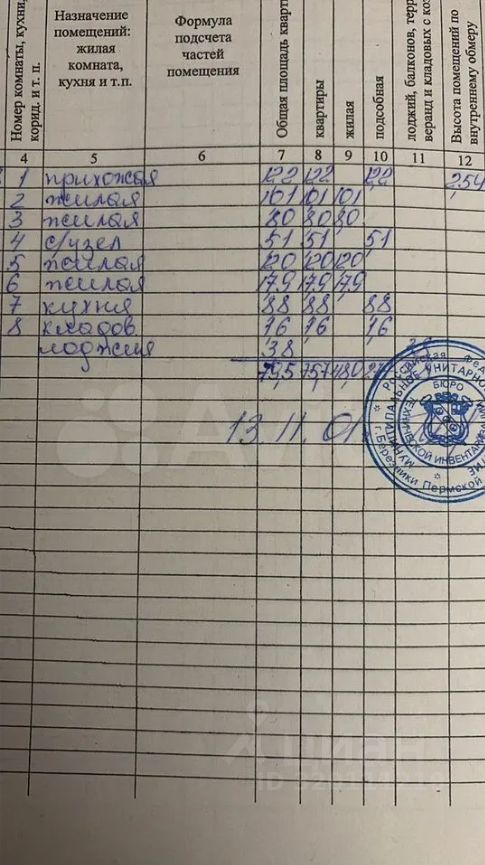 Номер комнаты, кухни,
корид. и т. п.
Назначение
помещений:
жилая
комната,
кухня и т.п.
Формула
подсчета
частей
помещения
Общая площадь кварти
квартиры
жилая
подсобная
лоджий, балконов, терр
веранд и кладовых с ко
Высота помещений по
внутреннему обмеру
4 5 6 7 8 9 10 11 12
1 прихожая 12,2 12,2 12,2 2,54
2 жилая 10,1 10,1 10,1
3 жилая 8,0 8,0 8,0
4 с/узел 5,1 5,1 5,1
5 жилая 12,0 12,0 12,0
6 жилая 17,9 17,9 17,9
7 кухня 8,8 8,8 8,8
8 кладов. 1,6 1,6 1,6
лоджия 3,8
79,5 75,7 48,0
13.11.01
Российская Феде
МУНИЦИПАЛЬНОЕ УНИТАРНО
БЮРО
ТЕХНИЧЕСКОЙ ИНВЕНТАР
г. Березники Пермской
циан